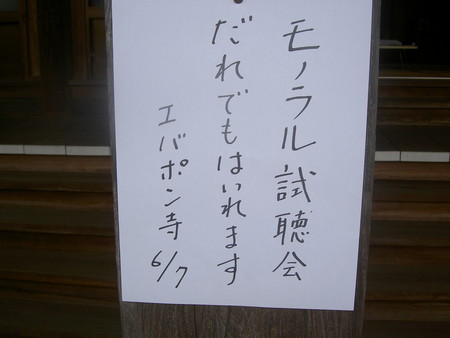 モノラル試聴会
だれでもはいれます
エバポン寺 6/7